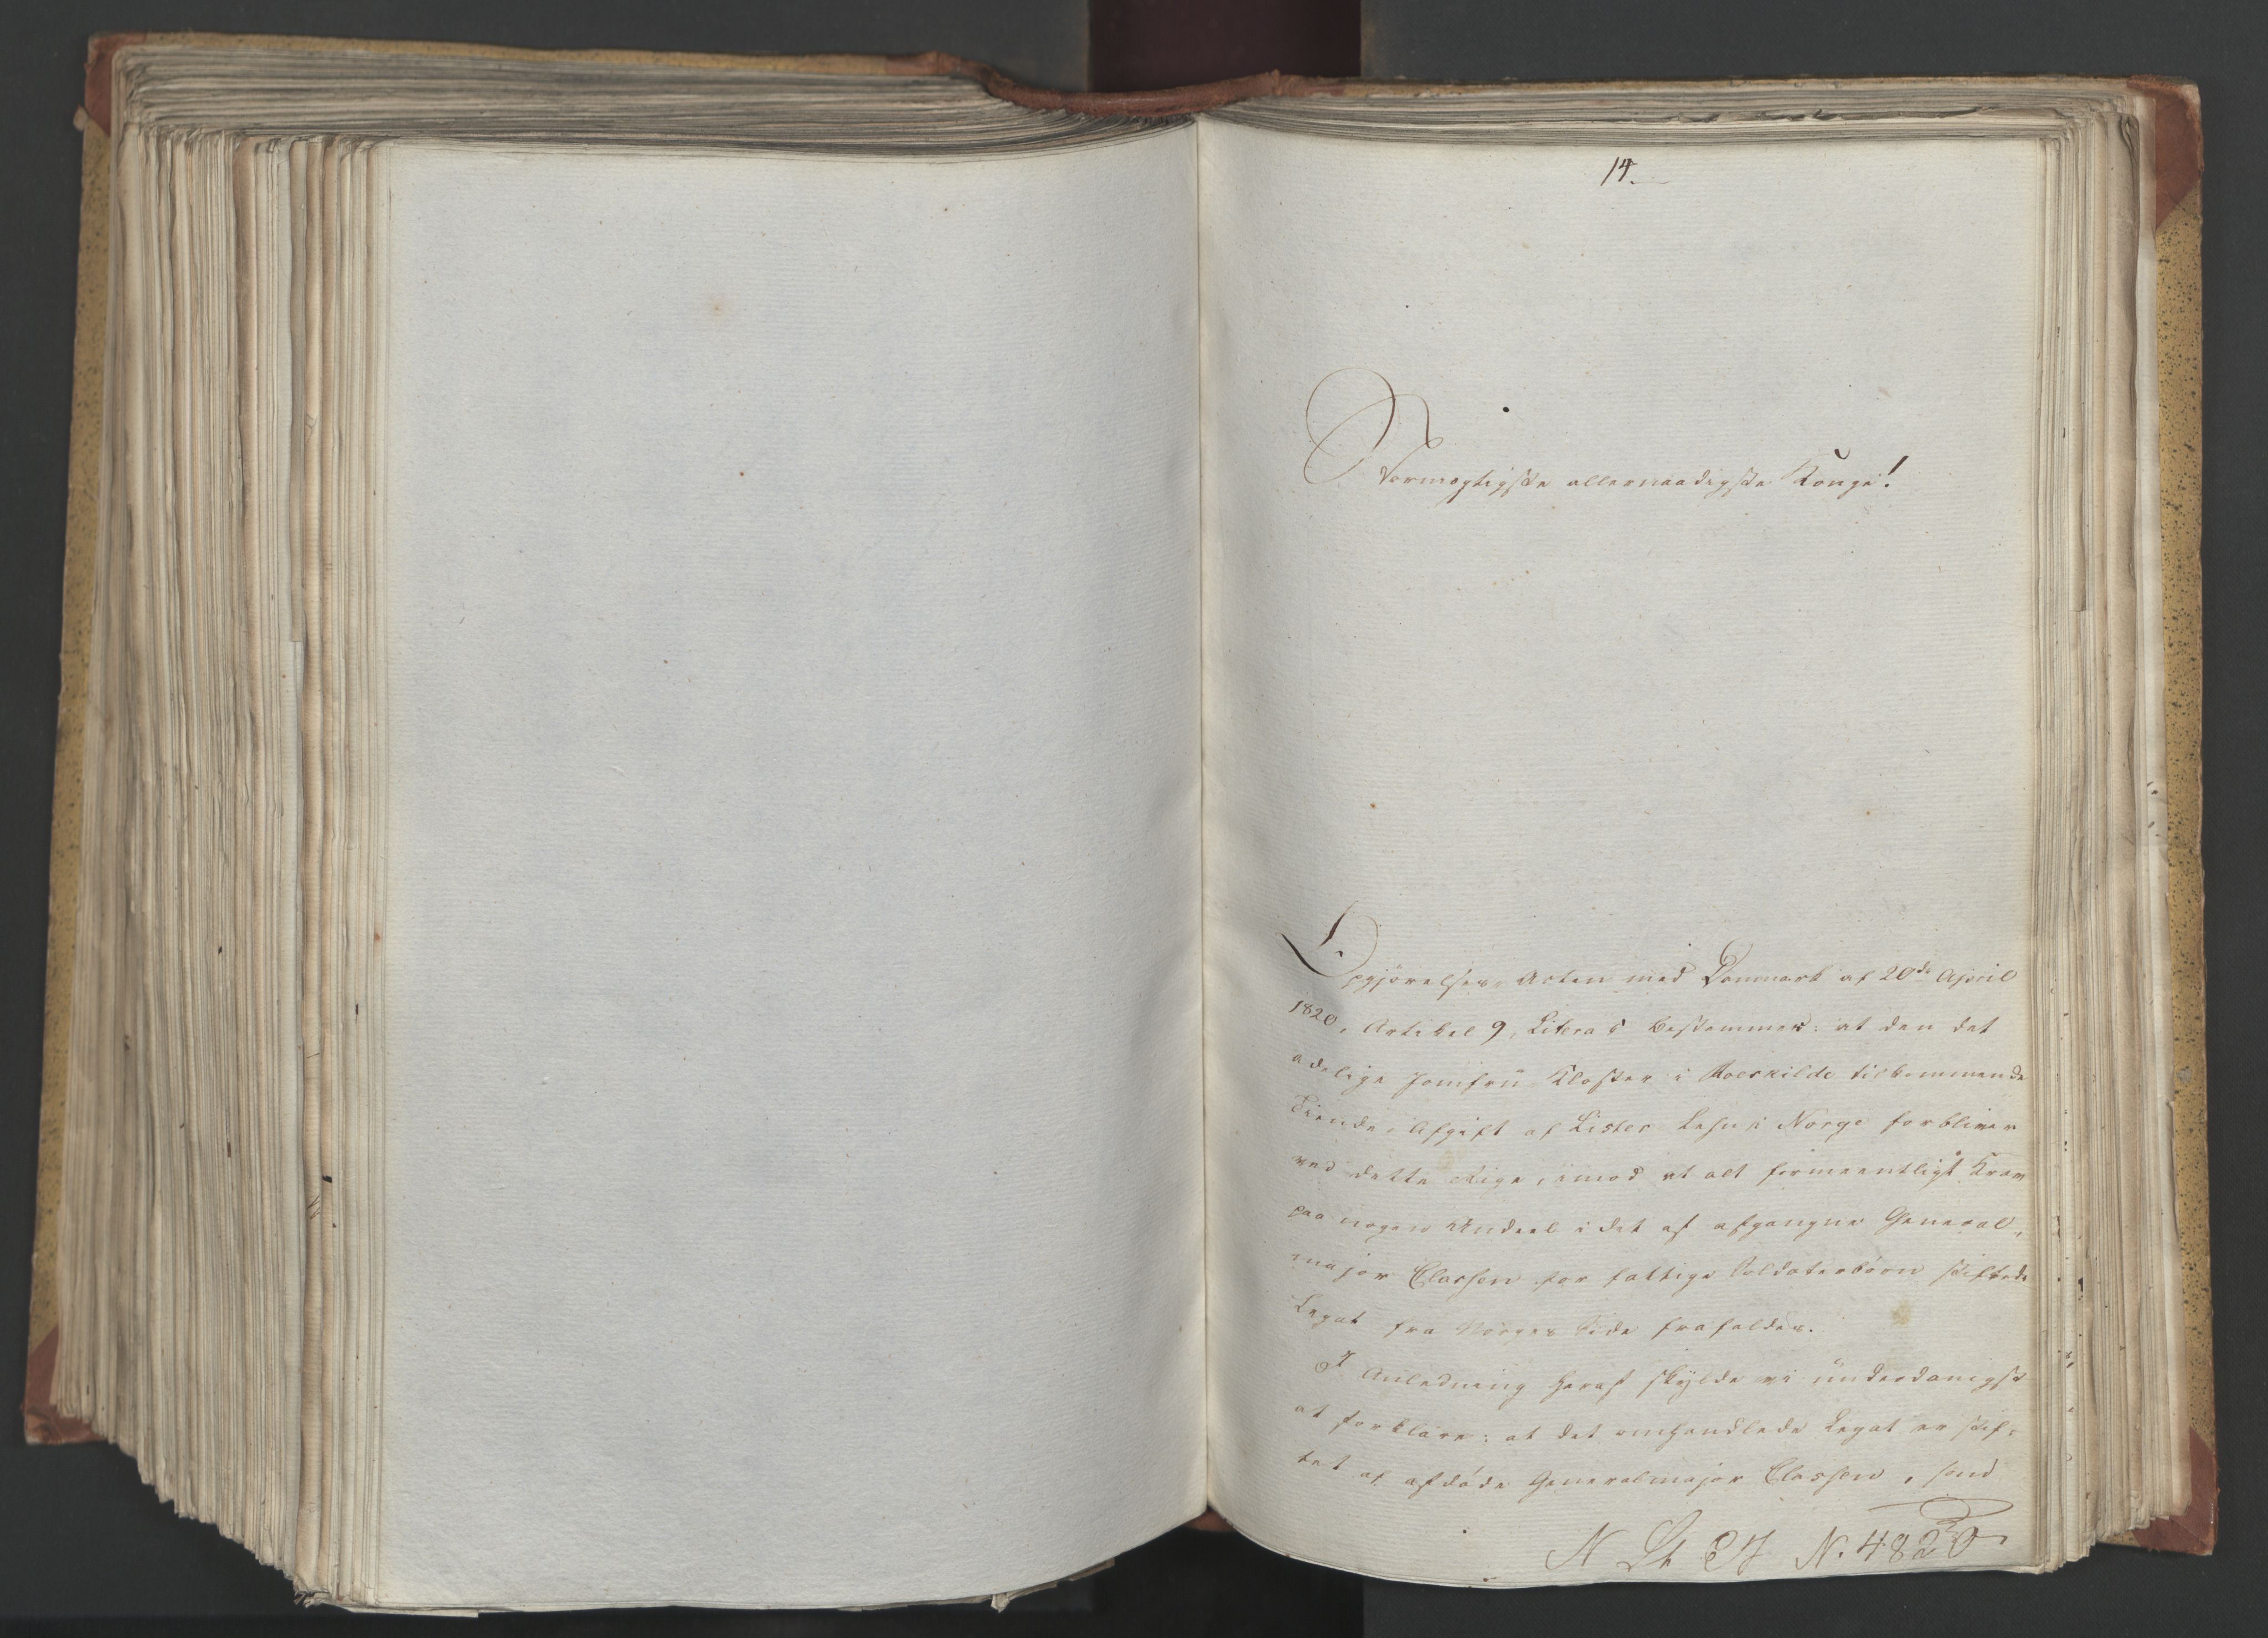 14.
Stormægtigste allernaadigste Konge!
Opgjörelses-Acten med Danmark af 20de April
1820, Artikel 9, Litera c bestemmer: at den det
adelige Jomfrü Kloster i Roeskilde tilkommende
Tiende-Afgift af Lister Lehn i Norge forbliver
ved dette Rige, imod at alt formeentligt Krav
paa nogen Andeel i det af afgangne General-
major Classen for fattige Soldaterbörn stiftede
Legat fra Norges Side frafaldes.
I Anledning heraf skylde vi ünderdanigst
at forklare: at det omhandlede Legat er stif-
tet af afdöde Generalmajor Classen, som
N St N. 4820